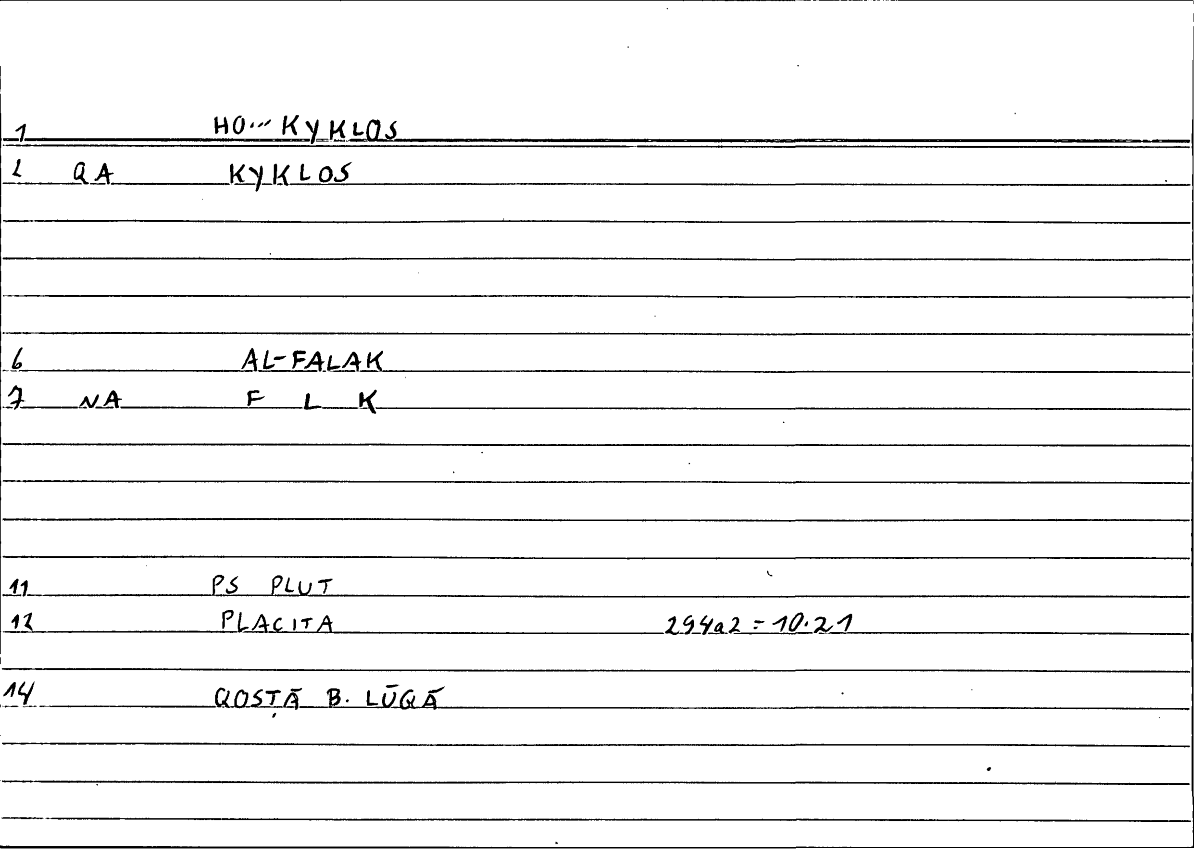 1 HO... KYKLOS
2 QA KYKLOS
6 AL-FALAK
7 NA F L K
11 PS PLUT
12 PLACITA 294a2 = 10.21
14 QOSṬĀ B. LŪQĀ